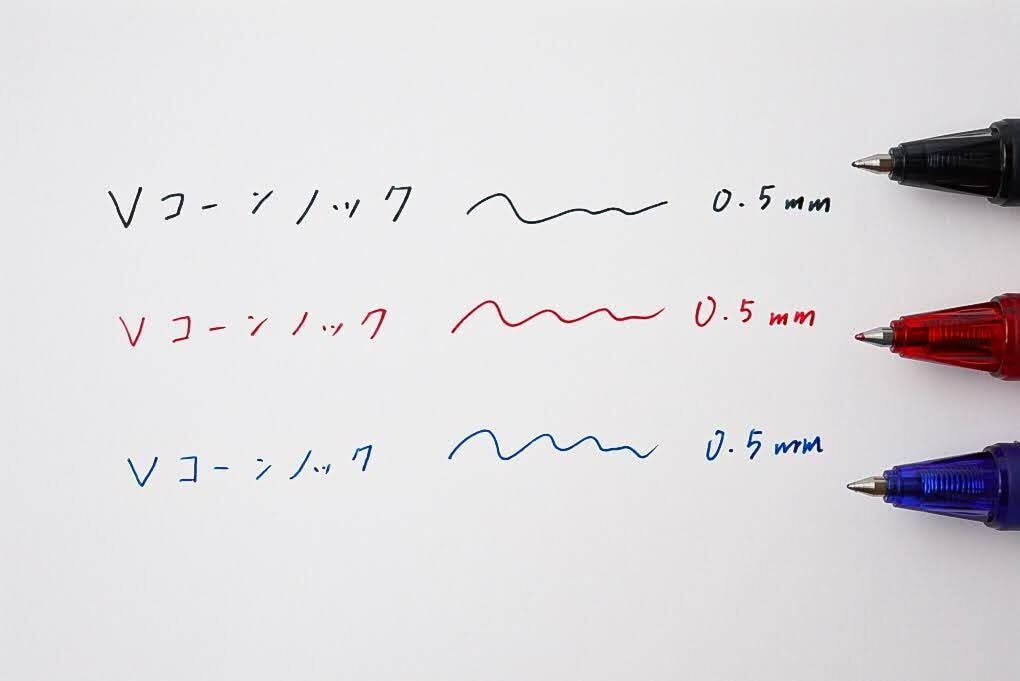 Vコーンノック 0.5mm
Vコーンノック 0.5mm
Vコーンノック 0.5mm